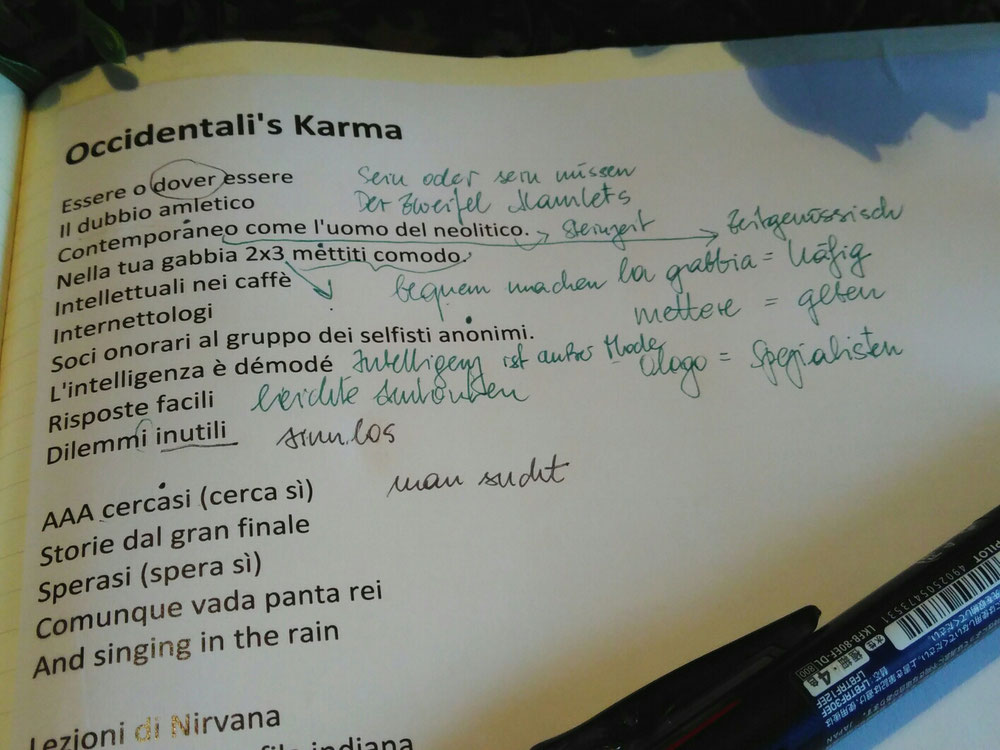 Occidentali's Karma
Essere o dover essere
Sein oder sein müssen
Il dubbio amletico
Der Zweifel Hamlets
Contemporaneo come l'uomo del neolitico.
Steinzeit
Zeitgenössisch
Nella tua gabbia 2x3 mettiti comodo.
bequem machen la gabbia = Käfig
Intellettuali nei caffè
mettere = geben
Internettologi
Soci onorari al gruppo dei selfisti anonimi.
ologo = Spezialisten
L'intelligenza è démodé
Intelligenz ist außer Mode
Risposte facili
leichte Antworten
Dilemmi inutili
sinnlos
AAA cercasi (cerca sì)
man sucht
Storie dal gran finale
Sperasi (spera sì)
Comunque vada panta rei
And singing in the rain
Lezioni di Nirvana
fila indiana
PILOT
4902505473531
LKFB-80EF-DL
800
極細・4色
LFBTRF30EF
LFBTRF12EF
JAPAN